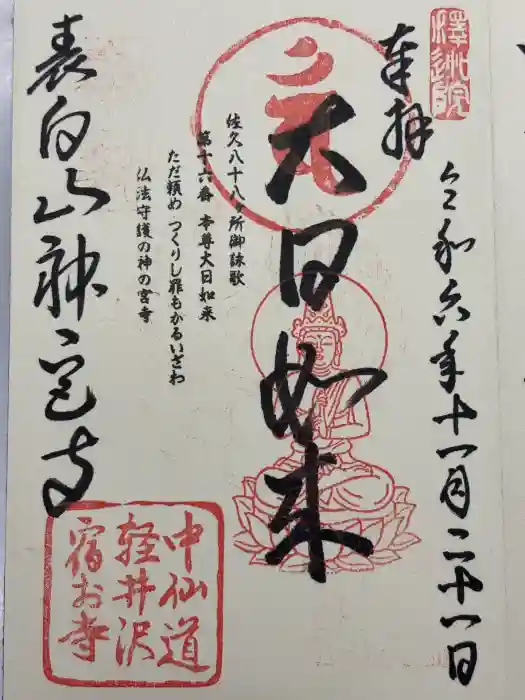 澤泄院
奉拝
令和六年十一月二十一日
大日如来
佐久八十八ヶ所御詠歌
第十六番 本尊大日如来
ただ頼め つくりし罪もかるいざわ
仏法守護の神の宮寺
表白山神宮寺
中仙道
軽井沢
宿お寺